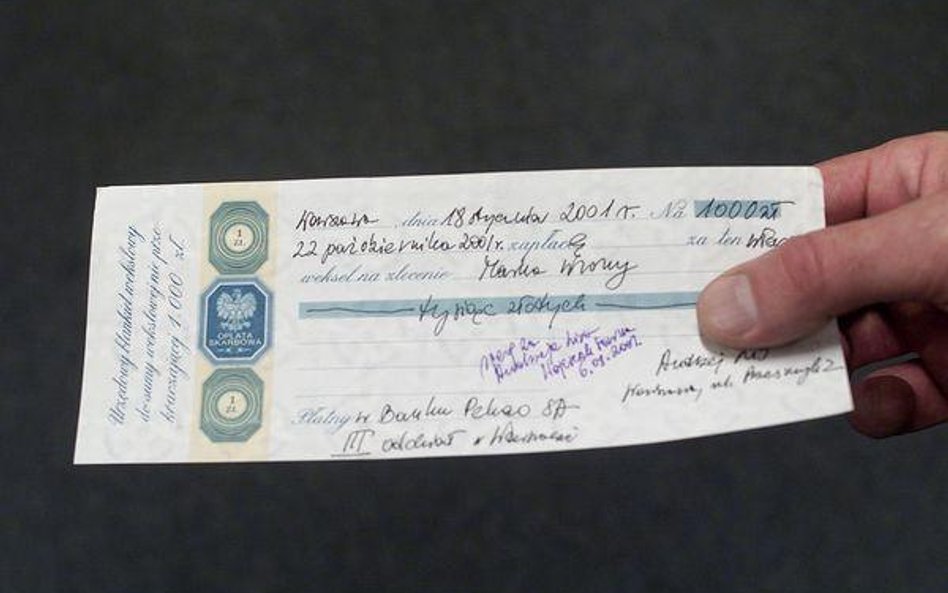 Urzędowy blankiet wekslowy
do sumy wekslowej nie prze-
kraczającej 1 000 zł.
1
ZŁ
OPŁATA
SKARBOWA
1
ZŁ
Warszawa, dnia 18 stycznia 2001 r. Na 1000 zł
22 października 2001 r. zapłacę za ten
weksel na zlecenie Marka Wrony
tysiąc złotych
poręczam za
Wojciech
6.01.2001
Andrzej
Warszawa, ul. 2
Płatny w Banku Pekao SA
III oddział w Warszawie